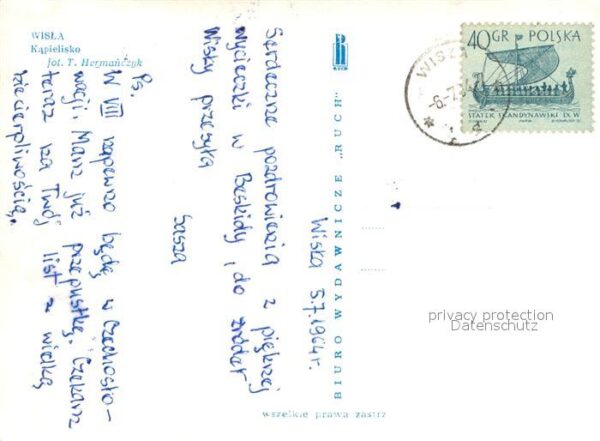 WISŁA
Kąpielisko
fot. T. Hermańczyk
Wisła 5.7.1964r.
Serdeczne pozdrowienia z pięknej
wycieczki w Beskidy, do źródeł
Wisły przesyła
Sasza
Ps.
W VIII napewno będę w Czechosło-
wacji. Mam już przepustkę. Czekam
teraz na Twój list z wielką
niecierpliwością.
BIURO WYDAWNICZE „RUCH"
wszelkie prawa zastrz
40 GR POLSKA
STATEK SKANDYNAWSKI IX W
WISŁA
-6-7.64
privacy protection
Datenschutz